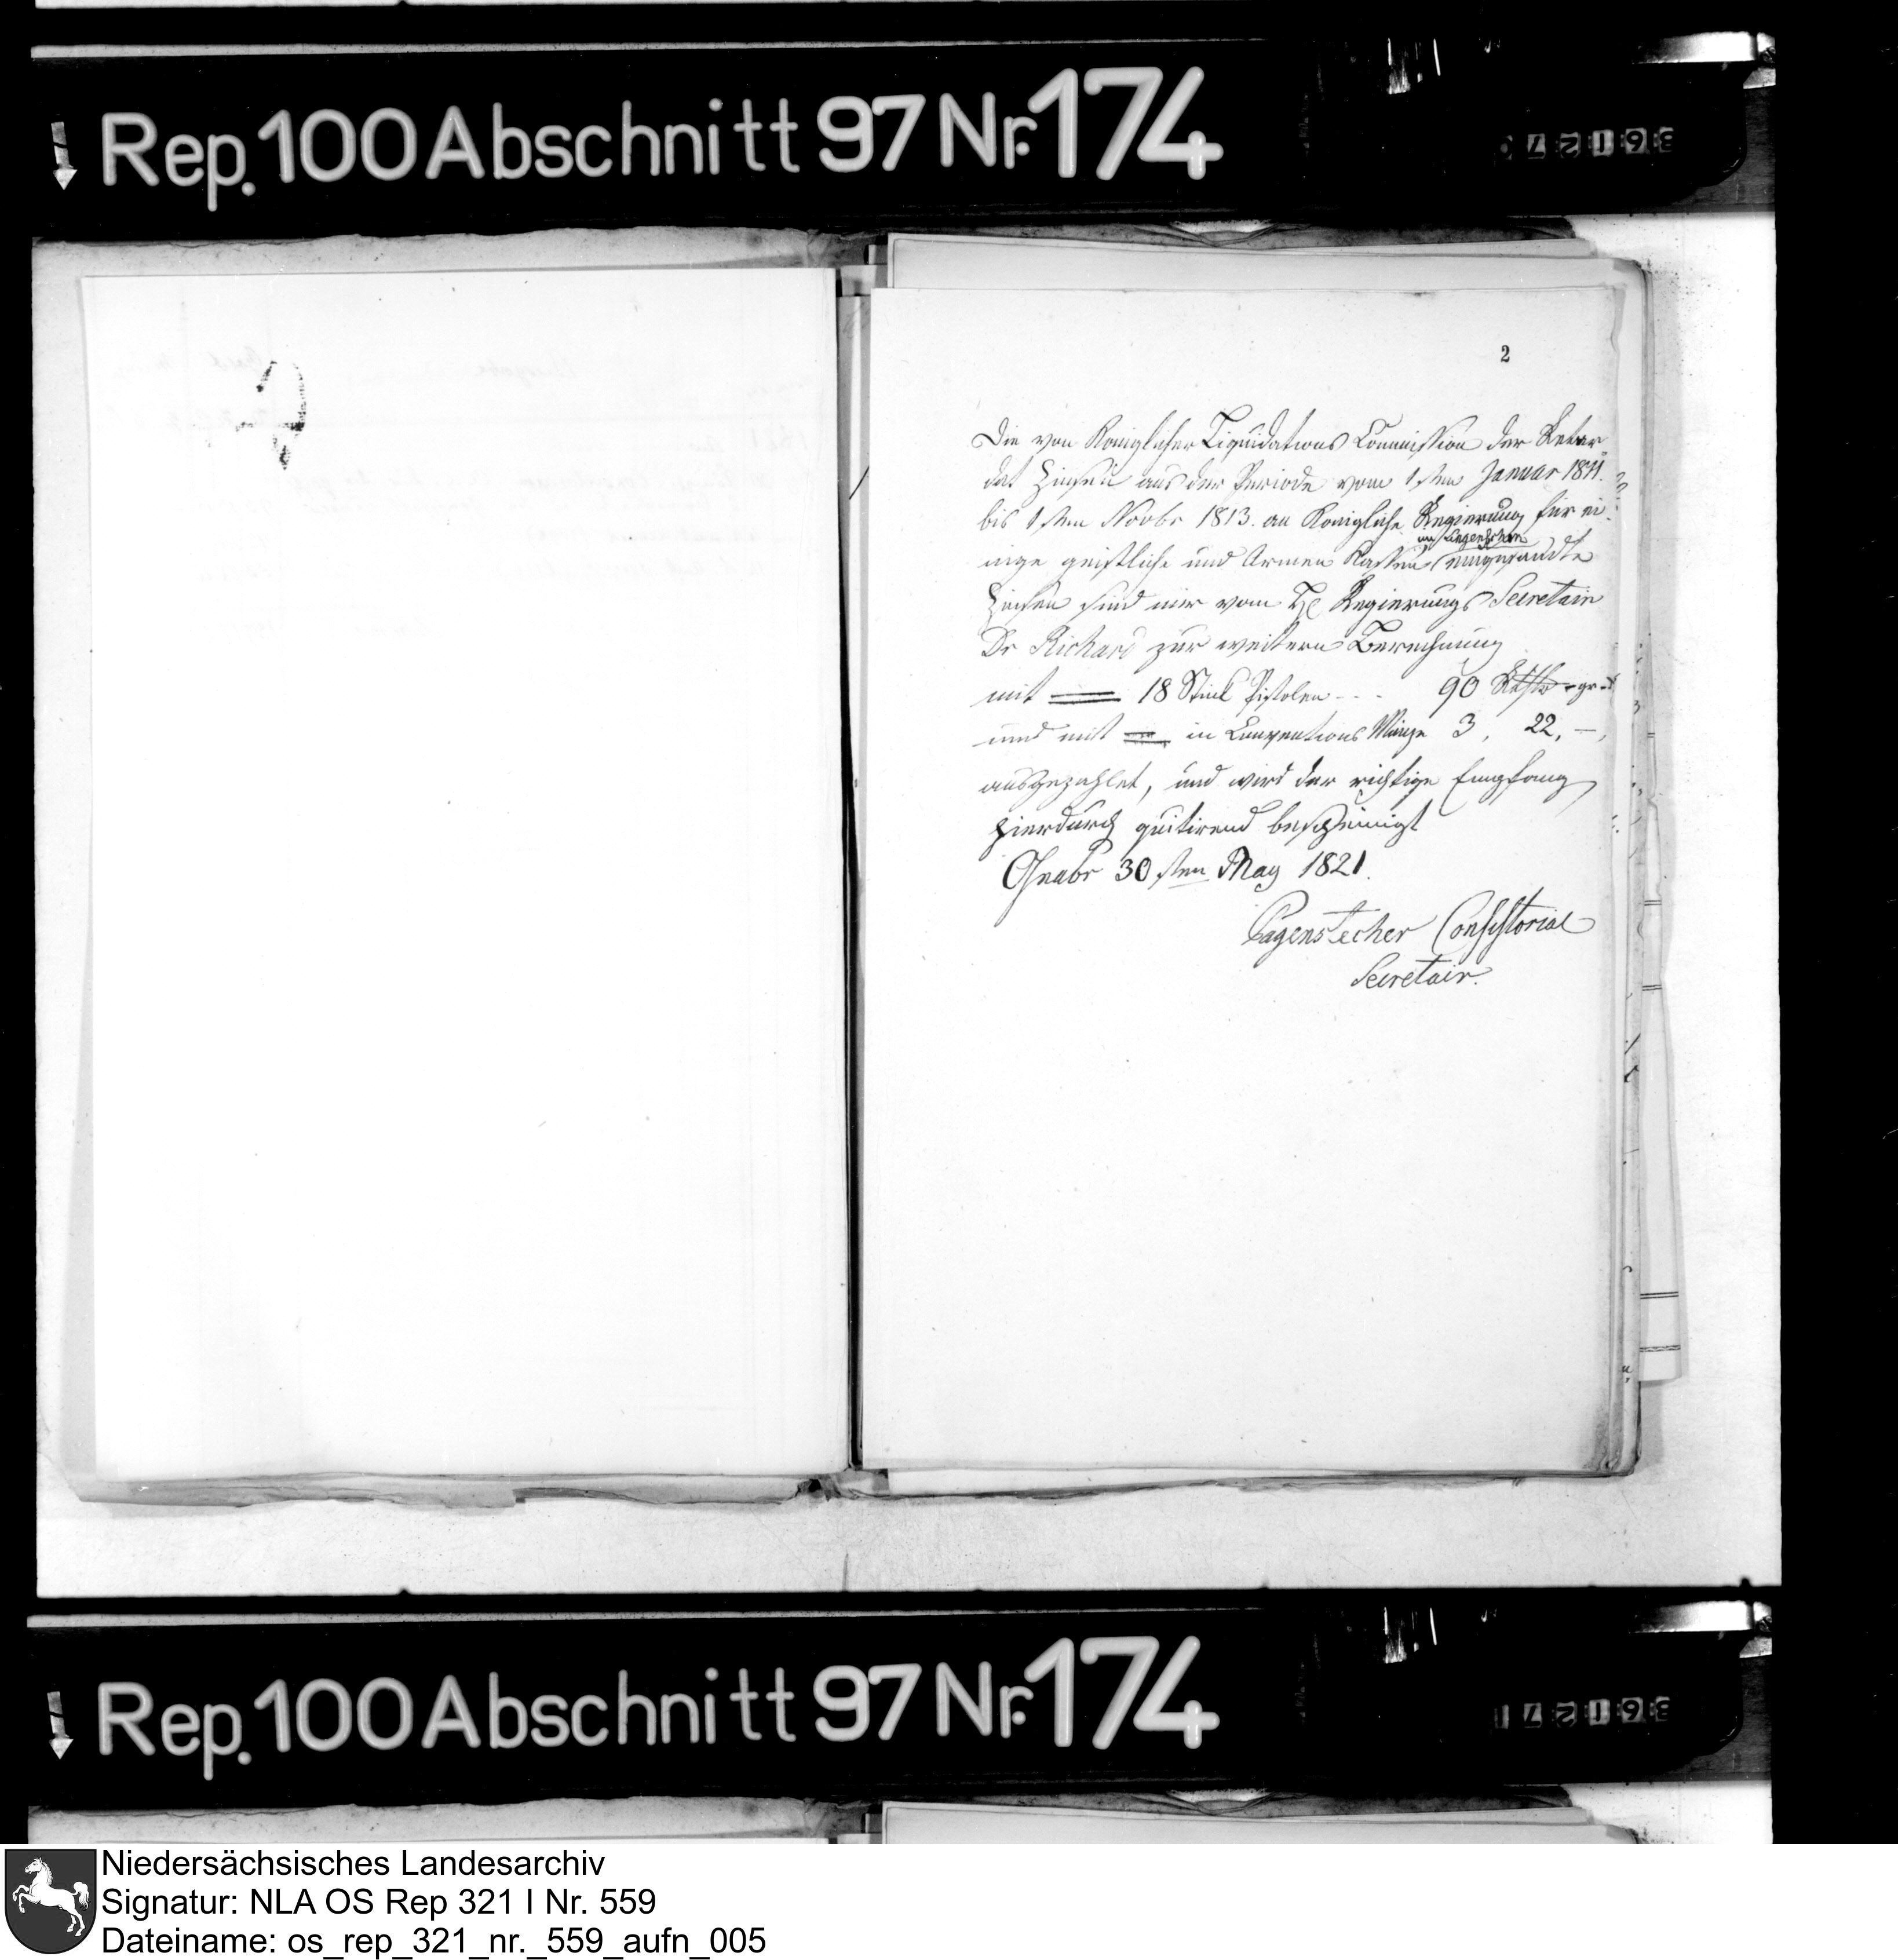 Rep. 100 Abschnitt 97 Nr. 174
2
Die von Königlicher Liquidations Commission der Retar
dat Zinsen aus der Periode vom 1sten Januar 1811.
bis 1sten Novbr 1813. an Königliche Regierung für ei-
nige geistliche und Armen Kassen eingesandte
Zinsen sind mir vom H. Regierungs Secretair
Dr Richard zur weitern Berechnung
mit 18 Stück Pistolen - - - 90 Rthlr - gr -
und mit in Conventions Münze 3 , 22, -,
ausgezahlet, und wird der richtige Empfang
hierdurch quitirend bescheinigt
Osnabr 30sten May 1821.
Pagenstecher Consistorial
Secretair.
Rep. 100 Abschnitt 97 Nr. 174
361271
Niedersächsisches Landesarchiv
Signatur: NLA OS Rep 321 I Nr. 559
Dateiname: os_rep_321_nr._559_aufn_005